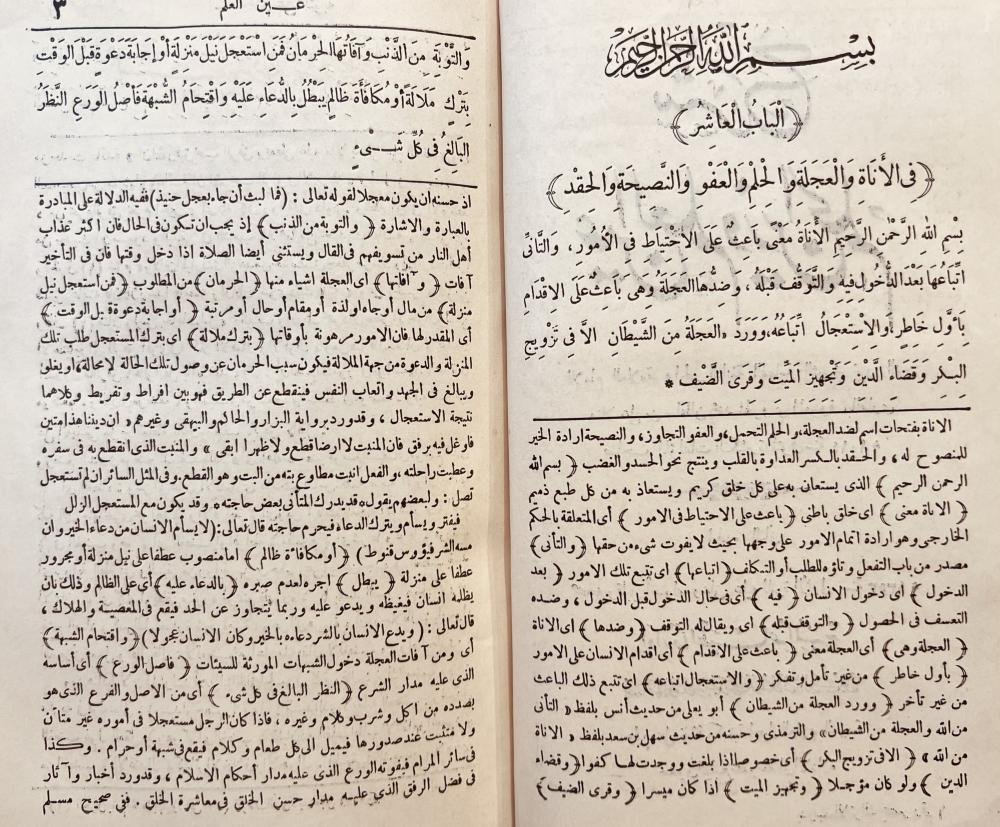 بِسْمِ اللهِ الرَّحْمٰنِ الرَّحِيمِ
﴿ اَلْبَابُ الْعَاشِرُ ﴾
﴿ فِى الْأَنَاةِ وَالْعَجَلَةِ وَالْحِلْمِ وَالْعَفْوِ وَالنَّصِيحَةِ وَالْحِقْدِ ﴾
بِسْمِ اللهِ الرَّحْمٰنِ الرَّحِيمِ الْأَنَاةُ مَعْنًى بَاعِثٌ عَلَى الْاحْتِيَاطِ فِى الْأُمُورِ، وَالتَّأَنِّى
اتِّبَاعُهَا بَعْدَ الدُّخُولِ فِيهِ وَالتَّوَقُّفُ قَبْلَهُ، وَضِدُّهَا الْعَجَلَةُ وَهِىَ بَاعِثٌ عَلَى الْإِقْدَامِ
بِأَوَّلِ خَاطِرٍ وَالِاسْتِعْجَالُ اتِّبَاعُهُ، وَوَرَدَ «الْعَجَلَةُ مِنَ الشَّيْطَانِ الَّا فِى تَزْوِيجِ
الْبِكْرِ وَقَضَاءِ الدَّيْنِ وَتَجْهِيزِ الْمَيِّتِ وَقِرَى الضَّيْفِ» *
الاناة بفتحات اسم لضد العجلة، والحلم التحمل، والعفو التجاوز، والنصيحة ارادة الخير
للمنصوح له، والحقد بالكسر العداوة بالقلب وينتج نحو الحسد والغضب ﴿ بسم الله
الرحمن الرحيم ﴾ الذى يستعان به على كل خلق كريم ويستعاذ به من كل طبع ذميم
﴿ الاناة معنى ﴾ اى خلق باطنى ﴿ باعث على الاحتياط فى الامور ﴾ أى المتعلقة بالحكم
الخارجى وهو ارادة اتمام الامور على وجهها بحيث لا يفوت شىء من حقها ﴿ والتأنى ﴾
مصدر من باب التفعل وتاؤه للطلب أو التكلف ﴿ اتباعها ﴾ اى تتبع تلك الامور ﴿ بعد
الدخول ﴾ اى دخول الانسان ﴿ فيه ﴾ أى فى حال الدخول قبل الدخول، وضده
التعسف فى الحصول ﴿ والتوقف قبله ﴾ اى ويقال له التوقف ﴿ وضدها ﴾ اى الاناة
﴿ العجلة وهى ﴾ أى العجلة معنى ﴿ باعث على الاقدام ﴾ أى اقدام الانسان على الامور
﴿ بأول خاطر ﴾ من غير تأمل وتفكر ﴿ والاستعجال اتباعه ﴾ اى تتبع ذلك الباعث
من غير تأخر ﴿ وورد العجلة من الشيطان ﴾ أبو يعلى من حديث أنس بلفظ «التأنى
من الله والعجلة من الشيطان» والترمذى وحسنه من حديث سهل بن سعد بلفظ «الاناة
من الله» ﴿ الا فى تزويج البكر ﴾ أى خصوصا اذا بلغت ووجدت لها كفوا ﴿ وقضاء
الدين ﴾ ولو كان مؤجلا ﴿ وتجهيز الميت ﴾ اذا كان ميسرا ﴿ وقرى الضيف ﴾
عــين العلم
٣
وَالتَّوْبَةِ مِنَ الذَّنْبِ وَآفَاتُهَا الْحِرْمَانُ فَمَنِ اسْتَعْجَلَ نَيْلَ مَنْزِلَةٍ أَوْ إِجَابَةَ دَعْوَةٍ قَبْلَ الْوَقْتِ
يَتْرُكُ مَلَالَةً أَوْ مُكَافَأَةَ ظَالِمٍ يَبْطُلُ بِالدُّعَاءِ عَلَيْهِ وَاقْتِحَامُ الشُّبْهَةِ فَأَصْلُ الْوَرَعِ النَّظَرُ
الْبَالِغُ فِى كُلِّ شَىْءٍ
اذ حسنه ان يكون معجلا لقوله تعالى : (فما لبث أن جاء بعجل حنيذ) ففيه الدلالة على المبادرة
بالعبارة والاشارة ﴿ والتوبة من الذنب ﴾ إذ يجب ان تكون فى الحال فان اكثر عذاب
أهل النار من تسويفهم فى القال ويستثنى أيضا الصلاة اذا دخل وقتها فان فى التأخير
آفات ﴿ وآفاتها ﴾ اى العجلة اشياء منها ﴿ الحرمان ﴾ من المطلوب ﴿ فمن استعجل نيل
منزلة ﴾ من مال أو جاه او لذة أو مقام أو حال أو مرتبة ﴿ أو اجابة دعوة قبل الوقت ﴾
أى المقدر لها فان الامور مرهونة بأوقاتها ﴿ يترك ملالة ﴾ اى يترك المستعجل طلب تلك
المنزلة والدعوة من جهة الملالة فيكون سبب الحرمان عن وصول تلك الحالة لا محالة، او يغلو
ويبالغ فى الجهد واتعاب النفس فينقطع عن الطريق فهو بين افراط وتفريط وكلاهما
نتيجة الاستعجال، وقد ورد برواية البزار والحاكم والبيهقى وغيرهم «ان ديننا هذا متين
فاوغل فيه برفق فان المنبت لا ارضا قطع ولا ظهرا ابقى» والمنبت الذى انقطع به فى سفره
وعطبت راحلته، والفعل انبت مطاوع بته من البت وهو القطع. وفى المثل السائر ان لم تستعجل
تصل : ولبعضهم يقول، قد يدرك المتأنى بعض حاجته، وقد يكون مع المستعجل الزلل
فيفتر ويسأم ويترك الدعاء فيحرم حاجته قال تعالى: (لا يسأم الانسان من دعاء الخير وان
مسه الشر فيؤوس قنوط) ﴿ أو مكافاة ظالم ﴾ اما منصوب عطفا على نيل منزلة أو مجرور
عطفا على منزلة ﴿ يبطل ﴾ اجره لعدم صبره ﴿ بالدعاء عليه ﴾ أى على الظالم وذلك بان
يظلمه انسان فيغيظه ويدعو عليه وربما يتجاوز عن الحد فيقع فى المعصية والهلاك،
قال تعالى : (ويدع الانسان بالشر دعاءه بالخير وكان الانسان عجولا) ﴿ واقتحام الشبهة ﴾
أى ومن آفات العجلة دخول الشبهات المورثة للسيئات ﴿ فاصل الورع ﴾ أى أساسه
الذى عليه مدار الشرع ﴿ النظر البالغ فى كل شىء ﴾ أى من الاصل والفرع الذى هو
بصدده من اكل وشرب وكلام وغيره، فاذا كان الرجل مستعجلا فى أموره غير متأن
ولا متثبت عند صدورها فيميل الى كل طعام وكلام فيقع فى شبهة أو حرام. وكذا
فى سائر المرام فيفوته الورع الذى عليه مدار أحكام الاسلام، وقد ورد أخبار وآثار
فى فضل الرفق الذي عليه مدار حسن الخلق فى معاشرة الخلق. ففى صحيح مسلم